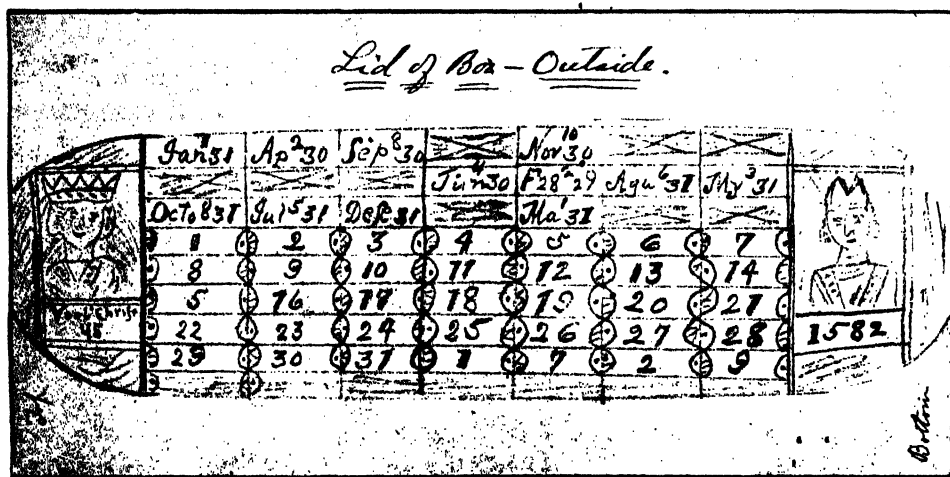 Lid of Box – Outside.
Jan 31 Ap 2 30 Sep 8 30 Nov 10 30
Jun 4 30 F 28 29 Agu 6 31 My 3 31
Octo 8 31 Jul 5 31 Dec 31 Ma 1 31
1 2 3 4 5 6 7
8 9 10 11 12 13 14
5 16 17 18 19 20 21
22 23 24 25 26 27 28
29 30 31 1 7 2 9
Christ
45
1582
Bottom